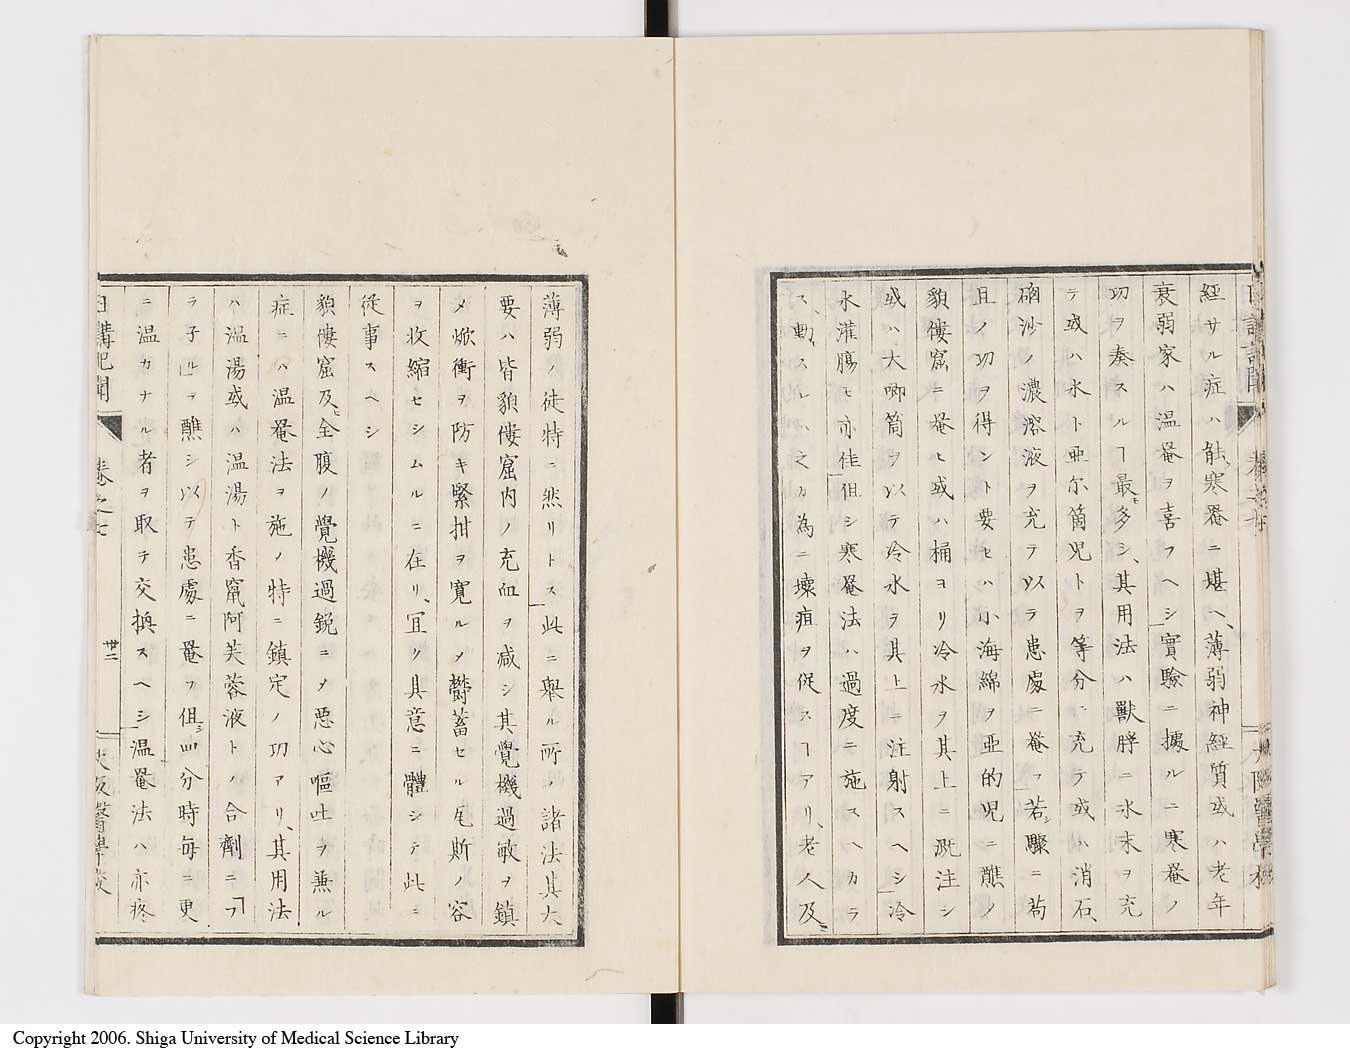 經サル症ハ能寒罨ニ堪ヘ、薄弱神經質或ハ老年
衰弱家ハ温罨ヲ喜フヘシ實驗ニ據ルニ寒罨ノ
功ヲ奏スルヿ最モ多シ、其用法ハ獸脬ニ氷末ヲ充
テ或ハ氷ト亜尓箇児トヲ等分ニ充テ或ハ消石、
硇沙ノ濃溶液ヲ充テ以テ患處ニ罨フ若シ驟ニ苟
且ノ功ヲ得ント要セハ小海綿ヲ亜的児ニ醮ノ
貌僂窟ニ罨ヒ或ハ桶ヨリ冷水ヲ其上ニ漑注シ
或ハ大喞筒ヲ以テ冷水ヲ其上ニ注射スヘシ冷
水灌膓モ亦佳但シ寒罨法ハ過度ニ施スヘカラ
ス、動スレハ之カ為ニ壊疽ヲ促スヿアリ、老人及ヒ
薄弱ノ徒特ニ然リトス此ニ舉ル所ノ諸法其大
要ハ皆貌僂窟内ノ充血ヲ減シ其覺機過敏ヲ鎮
メ焮衝ヲ防キ緊拑ヲ寛ルメ欝蓄セル瓦斯ノ容
ヲ收縮セシムルニ在リ、冝ク其意ニ體シテ此ニ
従事スヘシ
貌僂窟及ヒ全腹ノ覺機過鋭ニメ悪心嘔吐ヲ兼ル
症ニハ温罨法ヲ施ノ特ニ鎮定ノ功アリ、其用法
ハ温湯或ハ温湯ト香竄阿芙蓉液トノ合劑ニフ
ラ子ルヲ醮シ以テ患處ニ罨フ但シ四分時毎ニ更
ニ温カナル者ヲ取テ交換スヘシ温罨法ハ亦疼
日講記聞
巻之七
卅二
大阪醫學校
Copyright 2006. Shiga University of Medical Science Library